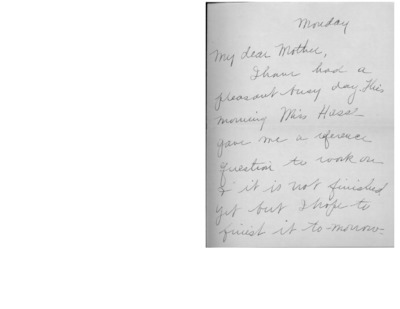 Monday
My dear Mother,
I have had a
pleasant busy day. This
morning Miss Hasse
gave me a reference
question to work on
& it is not finished
yet but I hope to
finish it to-morrow-